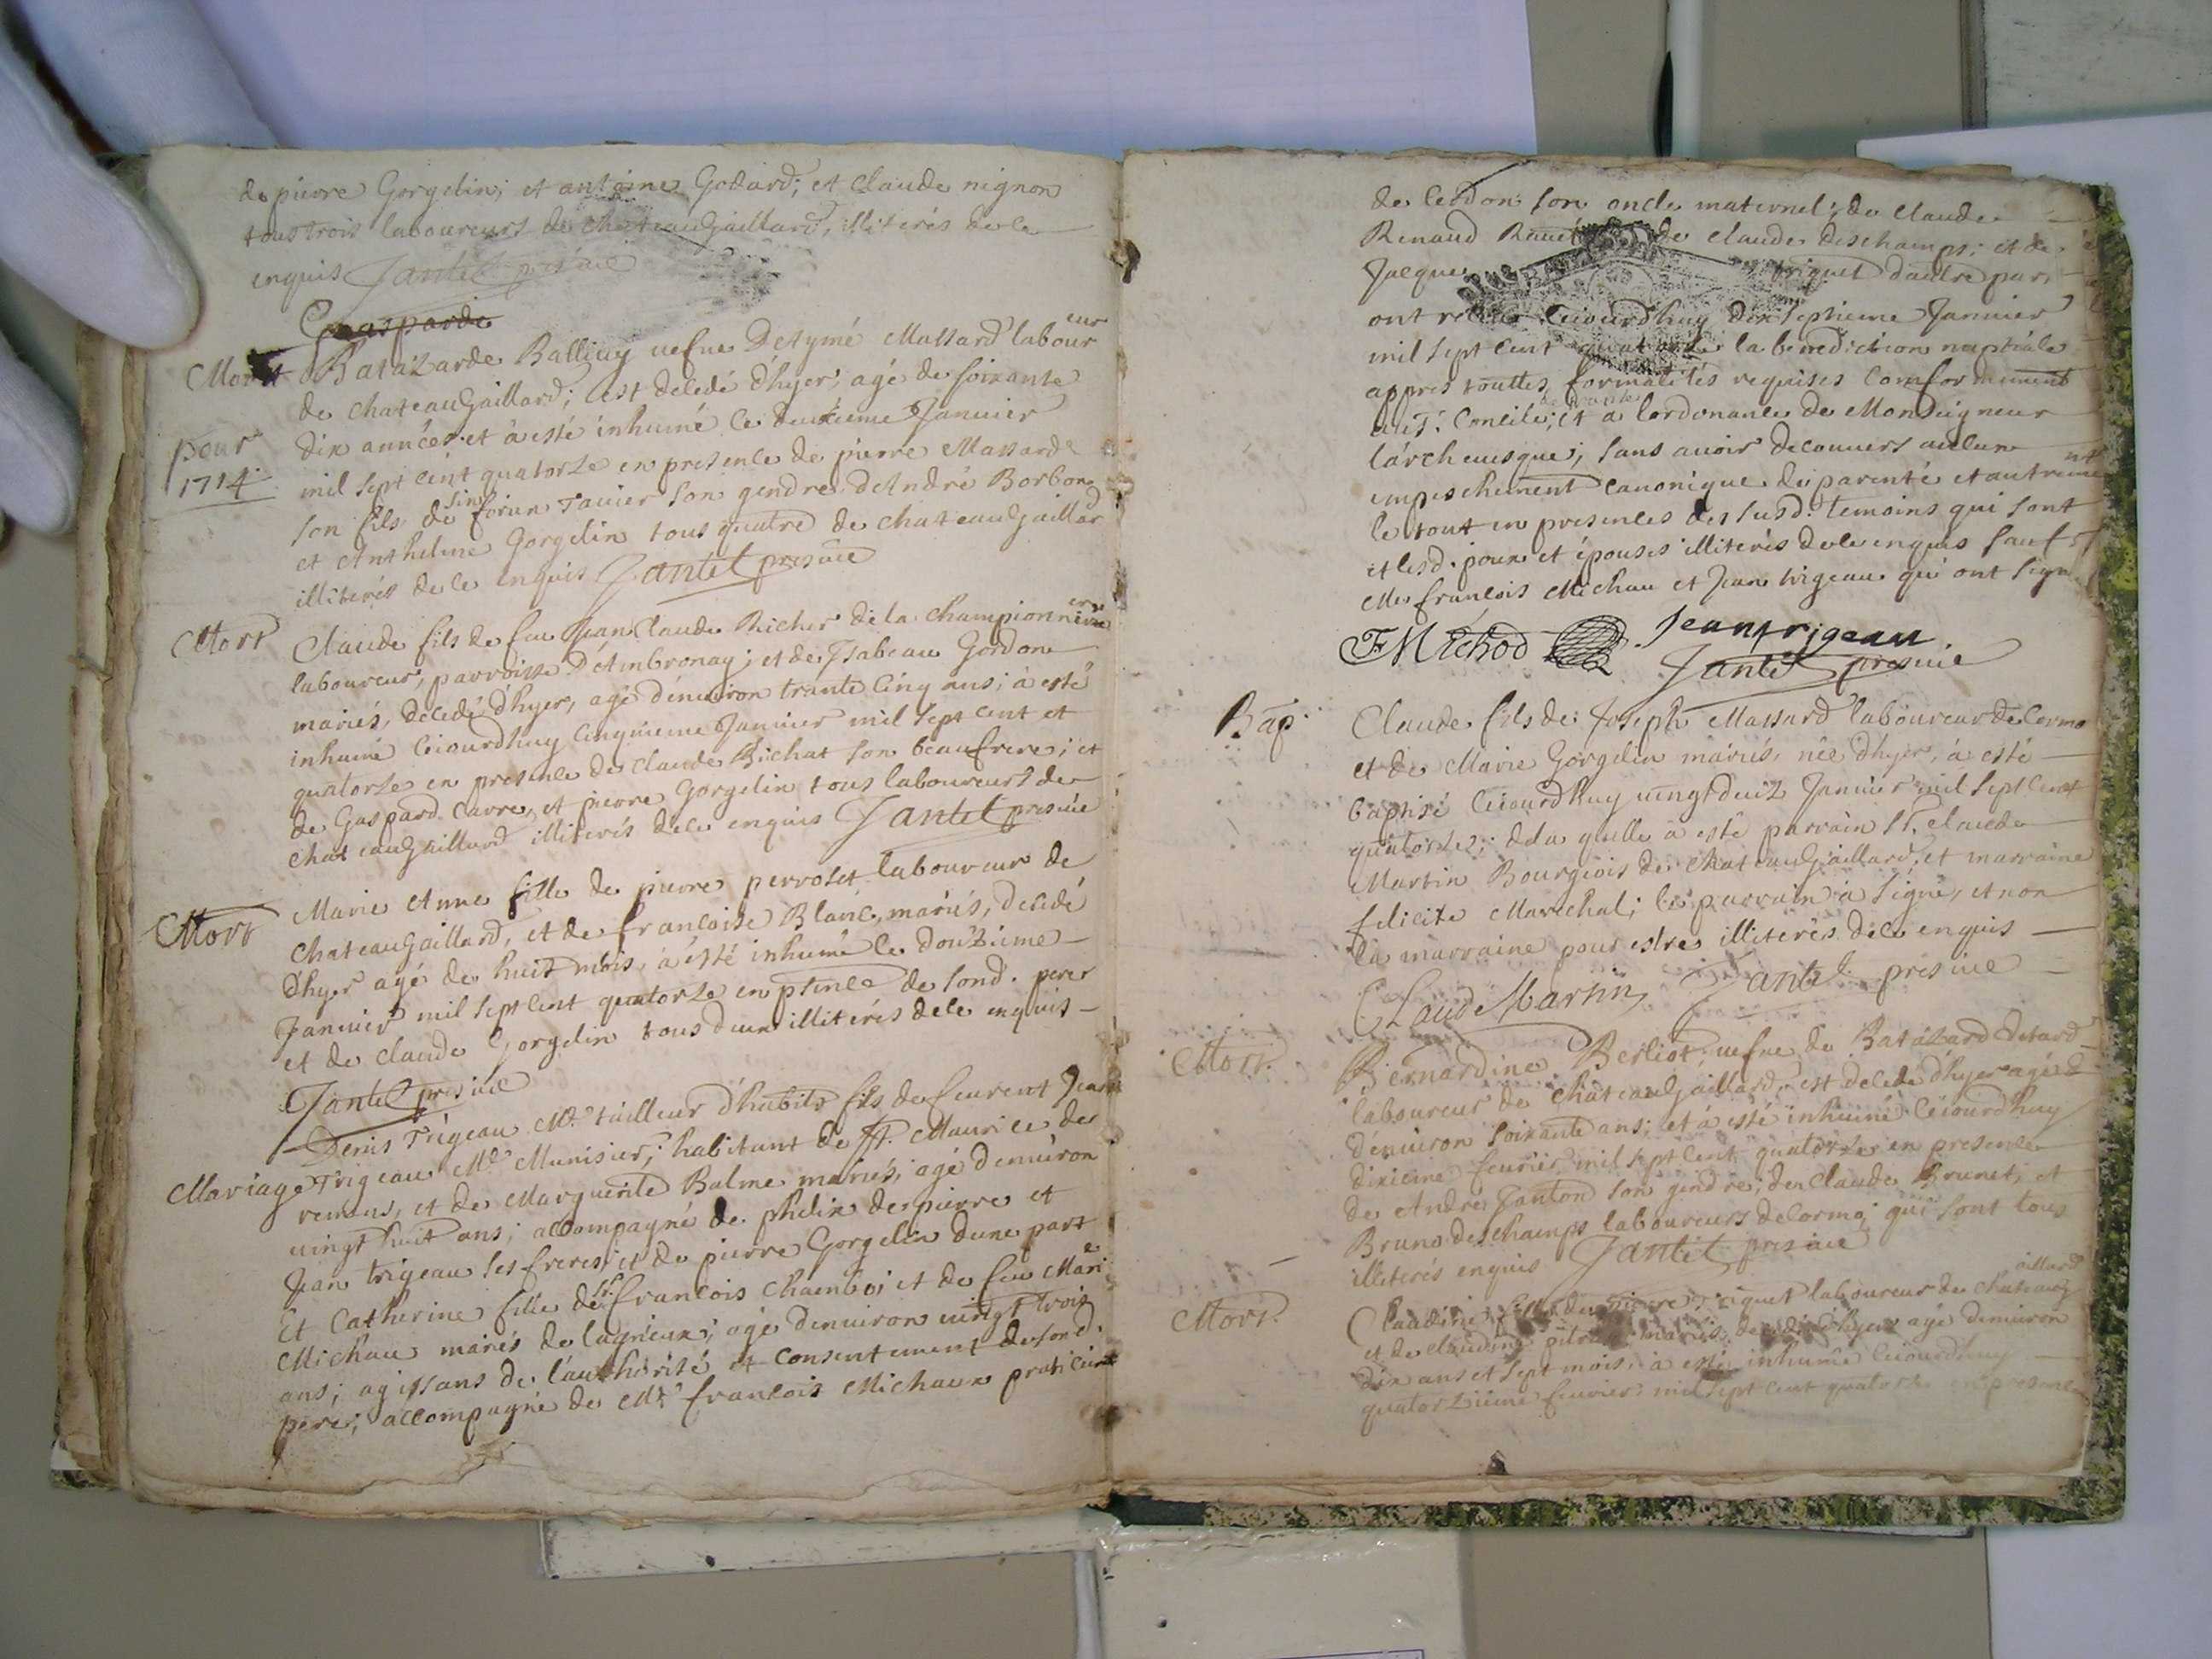 de pierre Gorgelin; et antoine Godard; et claude nignon
tous trois laboureurs de chateauGaillard, illiterés de ce
enquis Jantet presvic
Gasparde
Mort Batazarde Balliay uefue Detymé Massard laboureur
de chateauGaillard; est decedé d'hyer, agé de soixante
dix années et à esté inhumé le deuxieme Januier
pour
1714
mil sept cent quatorse en presence de pierre Massard
son fils de sinforien Tauier son gendre d'André Borbon
et Anthelme Gorgelin tous quatre de chateauGaillard
illiterés de ce enquis Jantet presvic
Mort Claude fils de feu Jean claude Richer de la championnerie
laboureur, parroisse D'Ambronay; et de Jsabeau Gordon
mariés, decedé d'hyer, agé d'enuiron trante cinq ans; à esté
inhumé ceiourdhuy cinquieme Januier mil sept cent et
quatorse en presence de claude Richat son beaufrere; et
de Gaspard Carre, et pierre Gorgelin tous laboureurs de
chateauGaillard illiterés de ce enquis Jantet presvic
Mort Marie Anne fille de pierre perroset laboureur de
chateauGaillard, et de francoise Blanc, mariés, decedé
d'hyer agé de huit mois, à esté inhumé le douzieme
Januier mil sept cent quatorse en psence de sond. pere
et de claude Gorgelin tous deux illiterés de ce enquis
Jantet presvic
Denis Trigeau Me. tailleur d'habits fils de feurent Jean
Mariage Trigeau Me. Munisier; habitant de St. Maurice de
remens, et de Marguerite Balme mariés, agé d'enuiron
uingt huit ans; accompagné de phelix de pierre et
Jean trigeau ses freres; et de pierre Gorgelin dune part
Et Catherine fille de sr. francois Chamboi et de feu Marie
Michau mariés de lagnieux; agé denuiron uingt trois
ans; agissans de l'authorité et consentement de sond.
pere; accompagné de Me. francois Michaux praticien
de Cerdon son oncle maternel; de claude
Renaud de claude deschamps; et de
Jacques triquet d'autre part
ont ceiourdhuy dix septieme Januier
mil sept cent quatorse la benediction nuptiale
appres touttes formalités requises conformement
au St. Concile de trante; et a lordonance de Monseigneur
lárcheuesque; sans auoir decouuert aulcun
empeschement canonique de parenté et autrement
le tout en presences des susd. temoins qui sont
et lesd. poux et épouses illiterés de ce enquis sauf
Me francois Michau et Jean trigeau qui ont signé
F Michod Jean trigeau
Jantet presvic
Bap. Claude fils de Joseph Massard laboureur de Cormo
et de Marie Gorgelin mariés, née d'hyer, à esté
baptisé ceiourdhuy uingtdeuz Januier mil sept cent
quatorse; de la quelle à esté parrain Sr. Claude
Martin Bourgeois de chateauGaillard, et marraine
felicite Marechal; le parrain à signé, et non
la marraine pour estre illiterés de ce enquis
Claude Martin Jantet presvic
Mort. Bernardine Berliot, uefue de Batazard Detard
laboureur de chateauGaillard, est decedé d'hyer agé
d'enuiron soixante ans; et à esté inhumé ceiourdhuy
dixieme feurier mil sept cent quatorse en presence
de André Janton son gendre; de Claude Brunet, et
Bruno deschamps laboureurs de Cormo; qui sont tous
illiterés enquis Jantet presvic
Mort. Claudine fille de pierre triquet laboureur de chateauGaillard
et de claudine mariés decedé d'hyer agé denuiron
dix ans et sept mois, à esté inhumé ceiourdhuy
quatorzieme feurier mil sept cent quatorse en presence